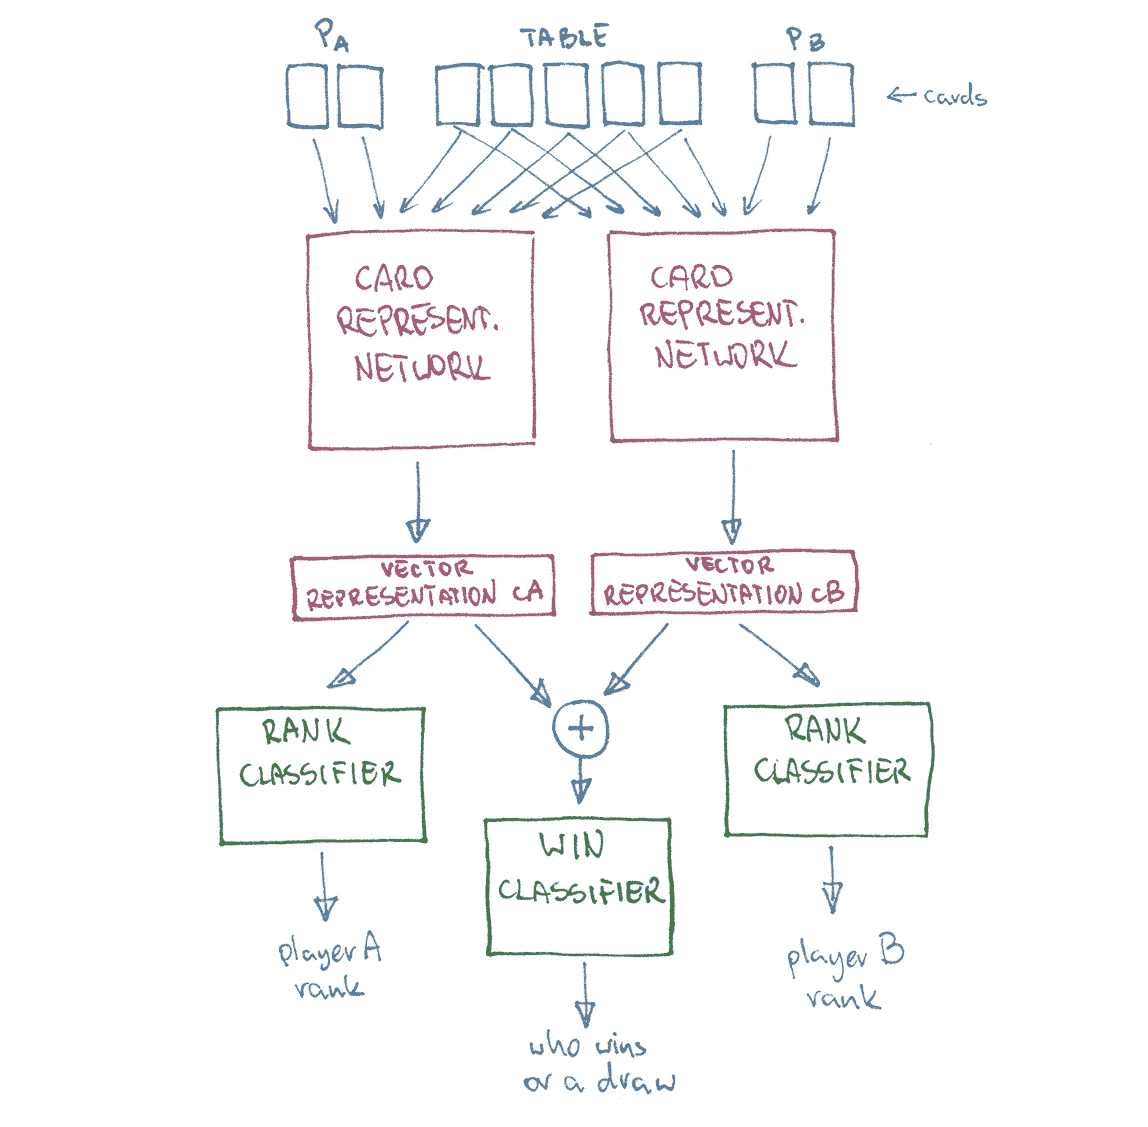 PA TABLE PB
← cards
CARD
REPRESENT.
NETWORK
CARD
REPRESENT.
NETWORK
VECTOR
REPRESENTATION cA
VECTOR
REPRESENTATION cB
+
RANK
CLASSIFIER
RANK
CLASSIFIER
WIN
CLASSIFIER
player A
rank
player B
rank
who wins
or a draw